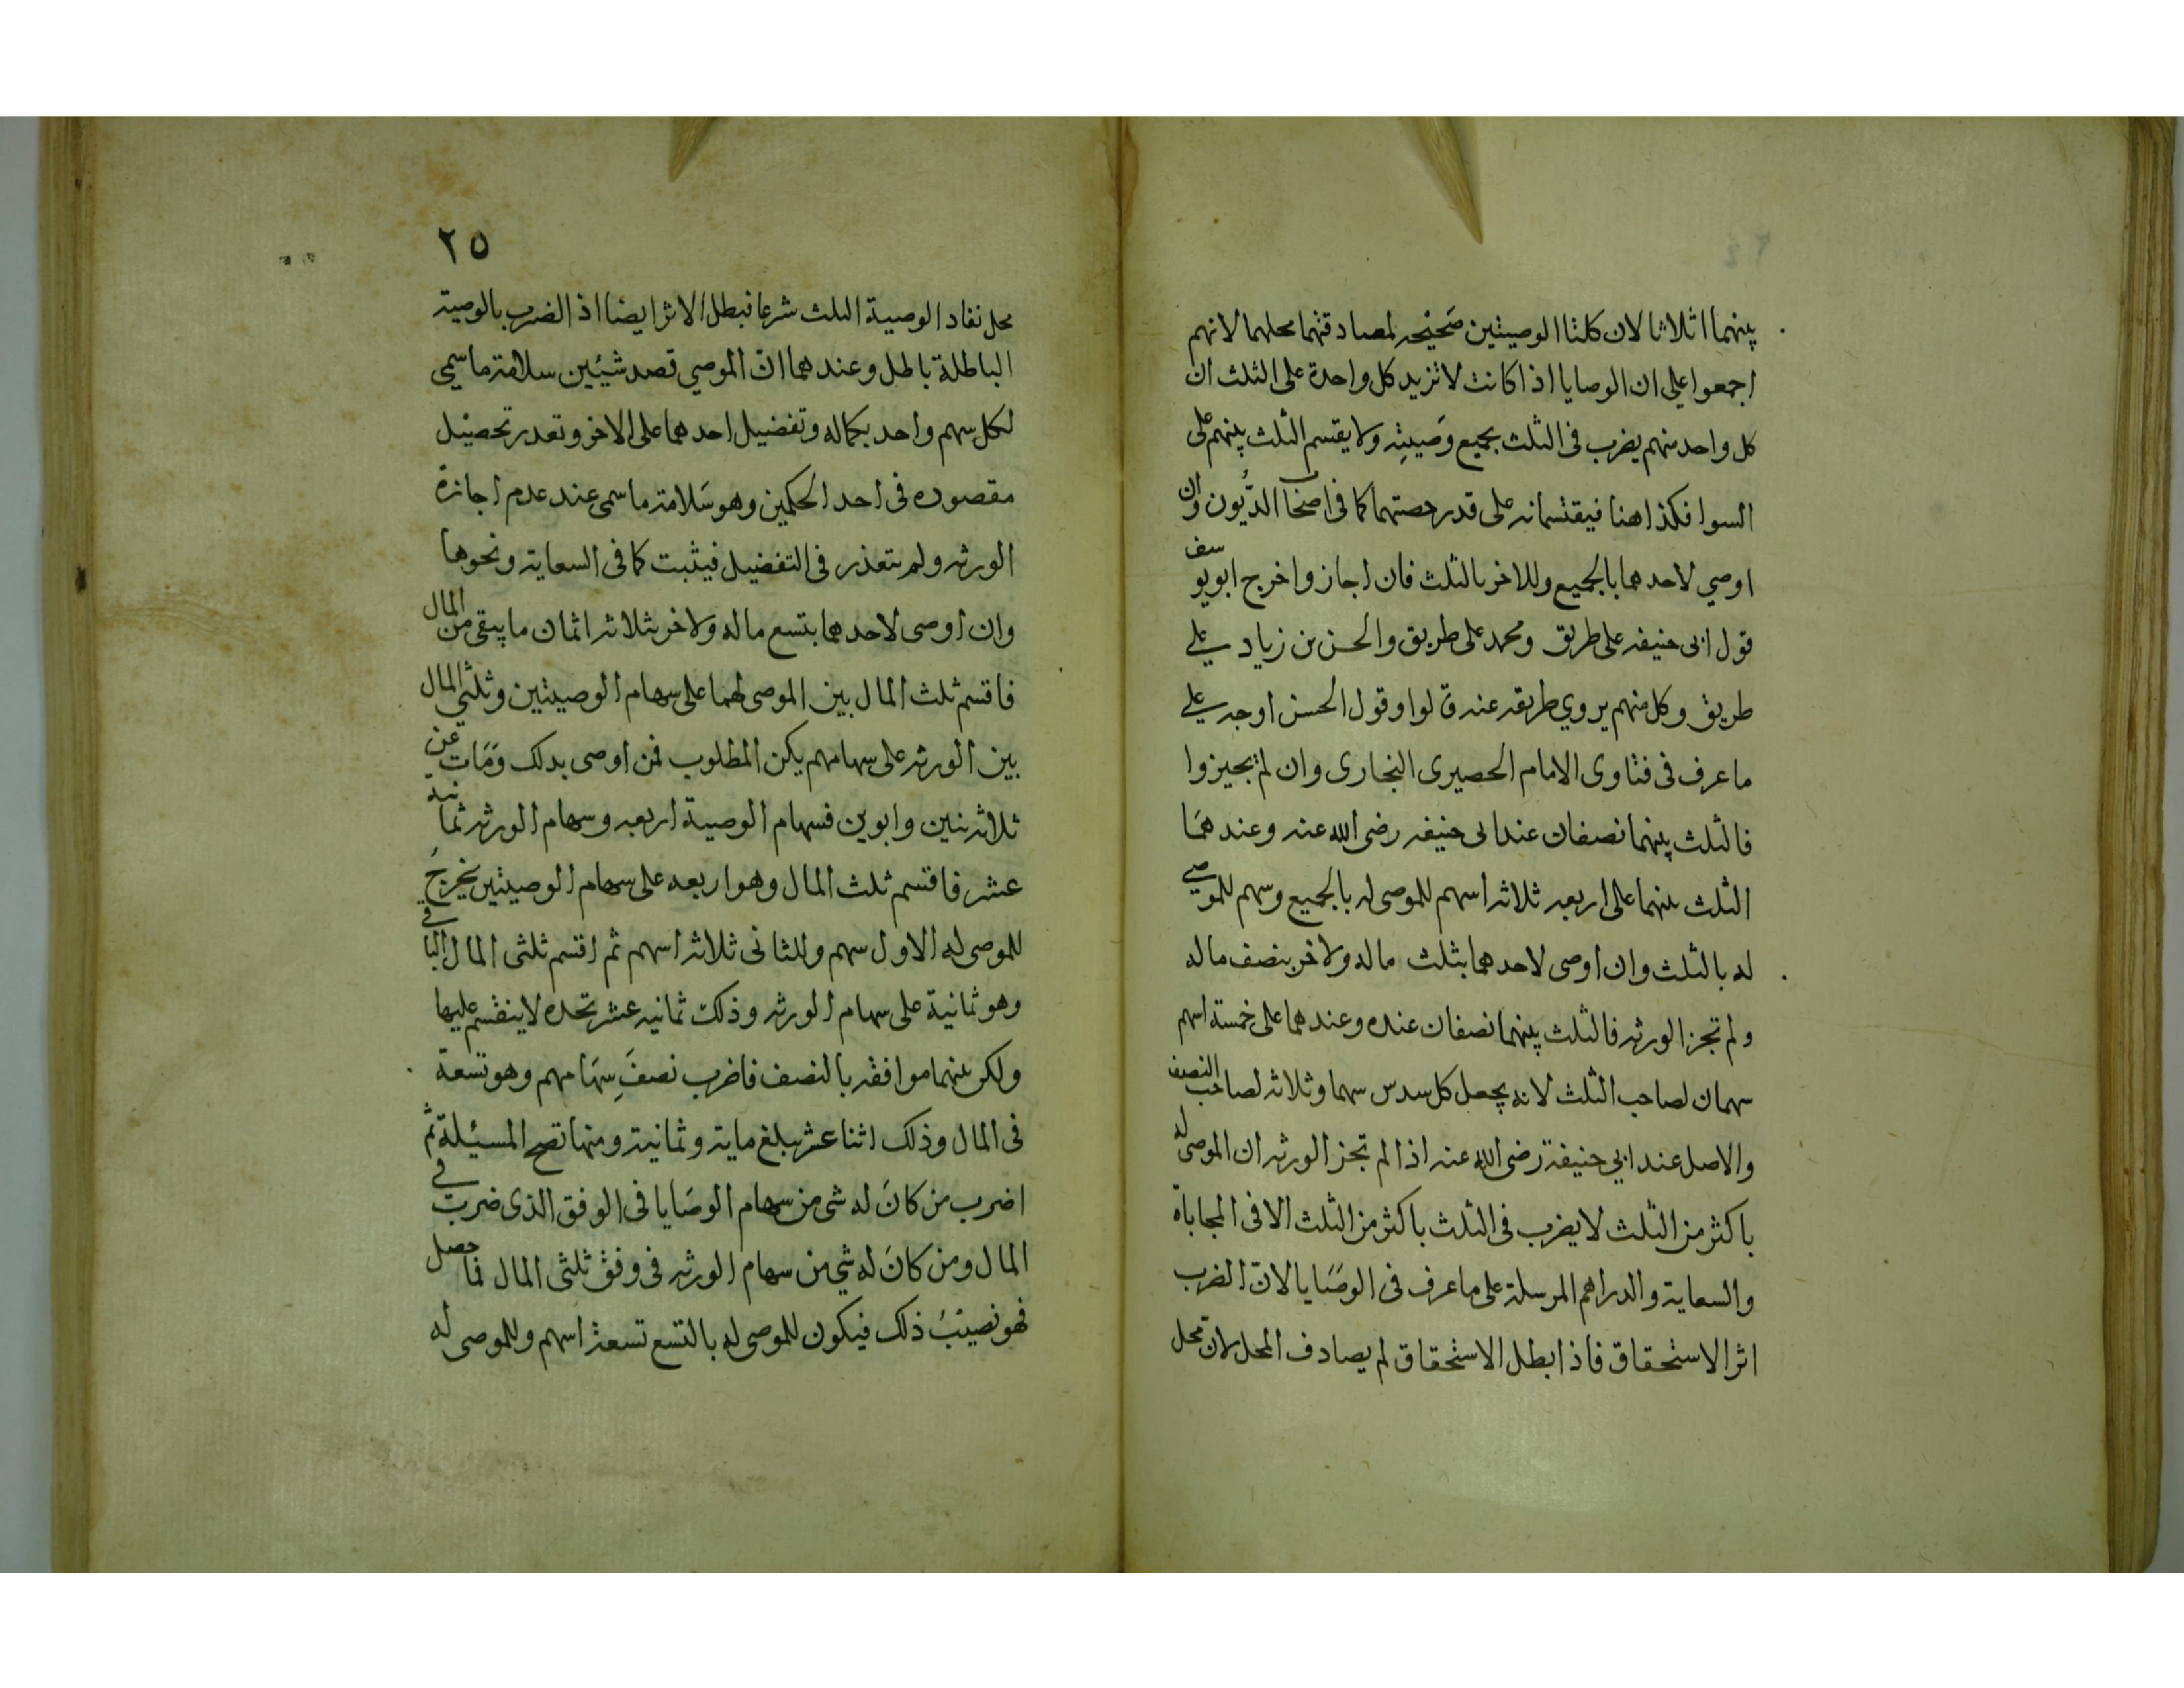 بينهما اثلاثا لان كلتا الوصيتين صَحيْحه لمصادقتهما محلهما لانهم
اجمعوا علي ان الوصايا اذا كانت لا تزيد كل واحدة على الثلث ان
كل واحد منهم يضرب فى الثلث بجميع وَصيتِه ولا يقسم الثلث بينهم على
السوا فكذا هنا فيقتسمانه على قدر حصتهما كما فى اصحاب الدُّيون وان
اوصي لاحدهما بالجميع وللاخر بالثلث فان اجازوا خرج ابويوسف
قول ابى حنيفه على طريق ومحمد على طريق والحسن بن زياد على
طريق وكل منهم يروي طريقه عنه قالوا وقول الحسن اوجه على
ما عرف فى فتاوى الامام الحصيرى البخارى وان لم يجيزوا
فالثلث بينهما نصفان عند ابى حنيفه رضى الله عنه وعندهمَا
الثلث بينهما على اربعه ثلاثه اسهم للموصى له بالجميع وسهم للموصي
له بالثلث وان اوصى لاحدهما بثلث ماله ولاخر بنصف ماله
ولم تجز الورثه فالثلث بينهما نصفان عنده وعندهما على خمسة اسهم
سهمان لصاحب الثلث لانه يجعل كل سدس سهما وثلاثه لصاحب النصف
والاصل عند ابي حنيفة رضى الله عنه اذا لم تجز الورثه ان الموصى له
باكثر من الثلث لا يضرب فى الثلث باكثر من الثلث الا فى المحاباة
والسعاية والدراهم المرسلة على ما عرف فى الوصَايا لانّ الضرب
اثر الاستحقاق فاذا بطل الاستحقاق لم يصادف المحل لانّ محل
٢٥
محل نفاد الوصية الثلث شرعا فبطل الاثر ايضا اذ الضرب بالوصية
الباطلة باطل وعندهما انّ الموصي قصد شيْئين سلامة ما سمي
لكل سهم واحد بكماله وتفضيل احدهما على الاخر وتعدر تحصيل
مقصوده فى احد الحكمين وهو سَلامة ما سمى عند عدم اجازة
الورثه ولم يتعذر فى التفضيل فيثبت كما فى السعاية ونحوها
وان اوصى لاحدهما بتسع ماله ولاخر بثلاثه اثمان ما يبقى من المال
فاقسم ثلث المال بين الموصى لهما على سهام الوصيتين وثلثي المال
بين الورثه على سهامهم يكن المطلوب فمن اوصى بدلك وَمَات عن
ثلاثه بنين وابوين فسهام الوصية اربعه وسهام الورثه ثمانيه
عشر فاقسم ثلث المال وهو اربعه على سهام الوصيتين يخرجُ
للموصى له الاول سهم وللثانى ثلاثه اسهم ثم اقسم ثلثى المال الباقي
وهو ثمانية على سهام الورثه وذلك ثمانيه عشر تجده لا ينقسم عليها
ولكن بينهما موافقه بالنصف فاضرب نصفَ سِهَامهم وهو تسعة
فى المال وذلك اثنا عشر يبلغ ماية وثمانية ومنها تصح المسئلة ثم
اضرب من كانَ له شى من سهام الوصَايا فى الوفق الذى ضربت في
المال ومن كانَ له شي من سهام الورثه فى وفق ثلثى المال فما حصل
فهو نصيبُ ذلك فيكون للموصى له بالتسع تسعة اسهم وللموصى له